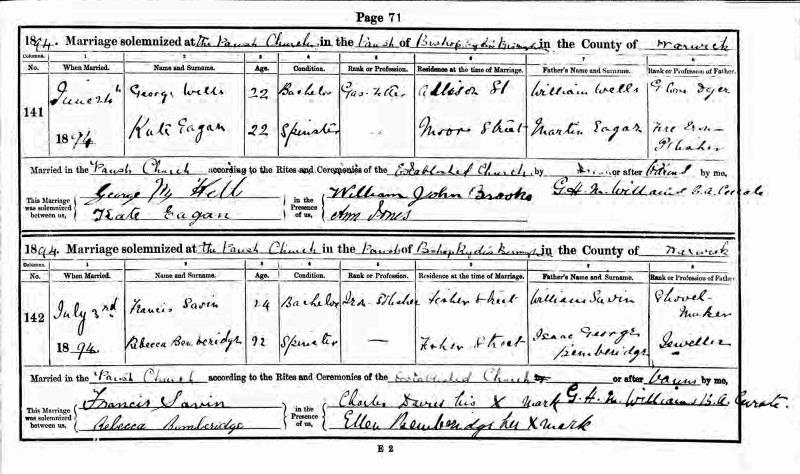 Page 71
1894. Marriage solemnized at the Parish Church in the Parish of Bishop Ryder Birmgham in the County of Warwick
Columns. 1 2 3 4 5 6 7 8
No. When Married. Name and Surname. Age. Condition. Rank or Profession. Residence at the time of Marriage. Father's Name and Surname. Rank or Profession of Father.
141 June 24th 1894 George Wells 22 Bachelor Allison St William Wells Glove Dyer
Kate Eagan 22 Spinster — Moor Street Martin Eagan Fire Iron-
Married in the Parish Church according to the Rites and Ceremonies of the Established Church by or after by me,
This Marriage was solemnized between us, George Kate Eagan in the Presence of us, William John Brooks Ann Jones G. H. M. Williams B.A. Curate
1894. Marriage solemnized at the Parish Church in the Parish of Bishop Ryder Birmgham in the County of Warwick
Columns. 1 2 3 4 5 6 7 8
No. When Married. Name and Surname. Age. Condition. Rank or Profession. Residence at the time of Marriage. Father's Name and Surname. Rank or Profession of Father
142 July 3rd 1894. Francis Savin 24 Bachelor Fisher Street William Savin Shovel-Maker
Rebecca Bemberidge 22 Spinster — Fisher Street Isaac George Bemberidge Jeweller
Married in the Parish Church according to the Rites and Ceremonies of the Established Church by or after banns by me,
This Marriage was solemnized between us, Francis Savin Rebecca Bemberidge in the Presence of us, Charles Davies his X mark Ellen Bemberidge her X mark G. H. M. Williams B.A. Curate.
E 2